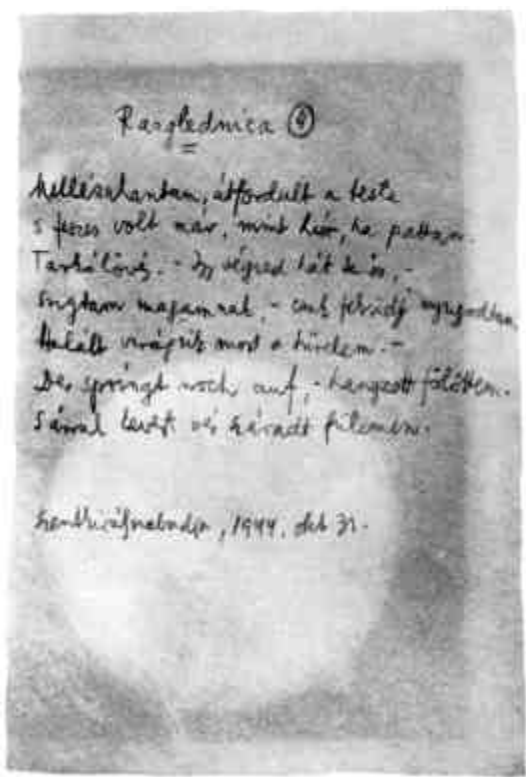 Razglednica ④
Mellézuhantam, átfordult a teste
s feszes volt már, mint húr, ha pattan.
Tarkólövés. - Igy végzed hát te is, -
súgtam magamnak, - csak feküdj nyugodtan.
Halált virágzik most a türelem. -
Der springt noch auf, - hangzott fölöttem.
Sárral kevert vér száradt fülemen.
Szentkirályszabadja, 1944. okt 31.